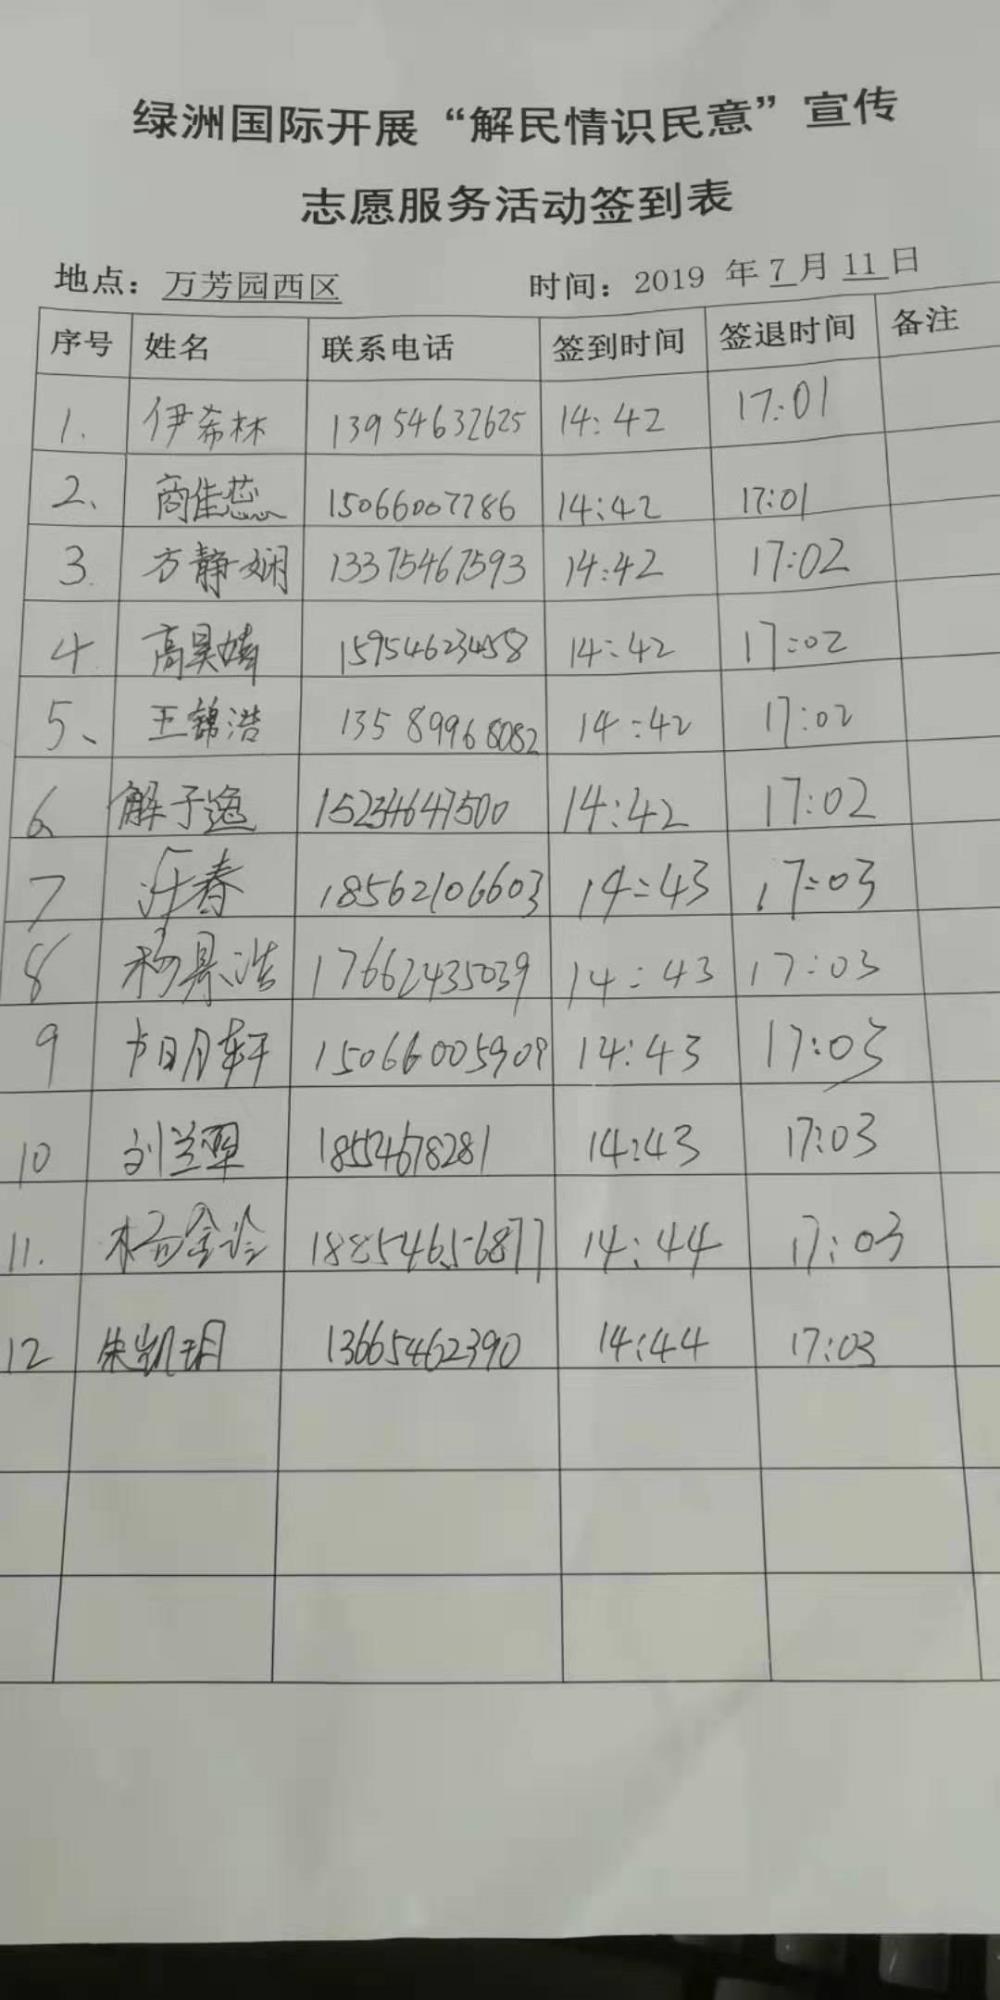 绿洲国际开展“解民情识民意”宣传
志愿服务活动签到表
地点：万芳园西区 时间：2019 年 7 月 11 日
序号 姓名 联系电话 签到时间 签退时间 备注
1. 伊希林 13954632625 14:42 17:01
2、 商佳蕊 15066007786 14:42 17:01
3. 方静娴 13375467593 14:42 17:02
4 高昊婧 15954623458 14:42 17:02
5、 王锦浩 13589968082 14:42 17:02
6 解子逸 15234647500 14:42 17:02
7 春 18562106603 14:43 17:03
8 杨景浩 17662435039 14:43 17:03
9 轩 15066005909 14:43 17:03
10 刘兰翠 14:43 17:03
11. 杨金诊 18854656877 14:44 17:03
12 朱凯玥 13665462390 14:44 17:03